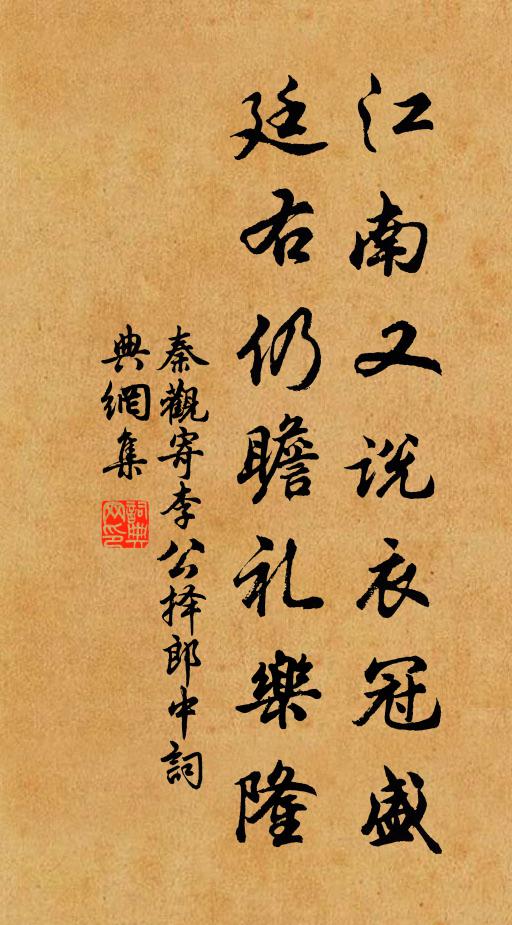 江南又说衣冠盛
廷右仍瞻礼樂隆
秦觀寄李公择郎中詞
典網集
詞典网印